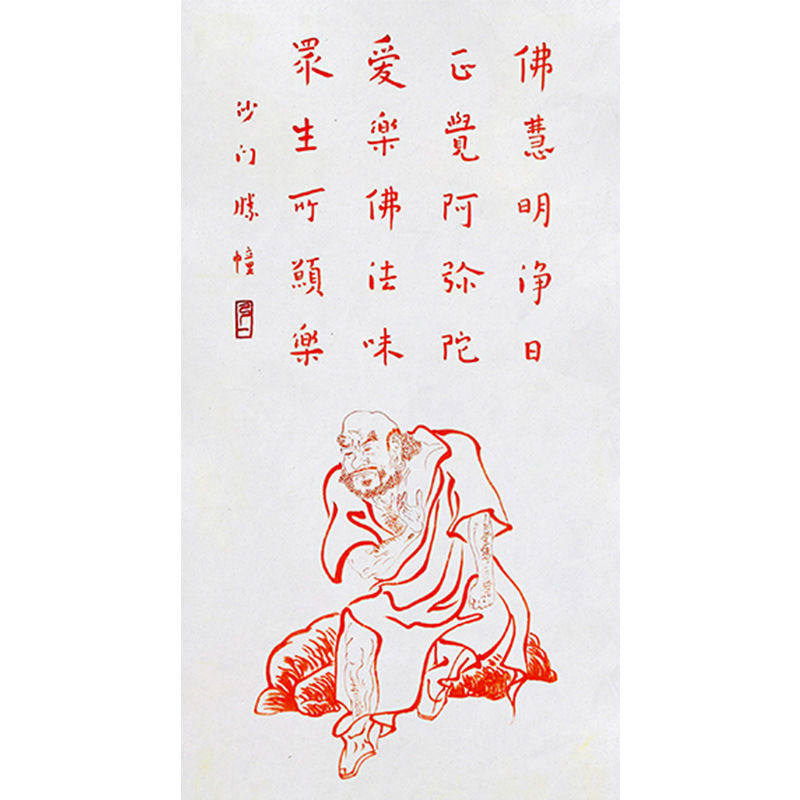 佛慧明净日
正覺阿弥陀
愛樂佛法味
眾生所願樂
沙门勝幢